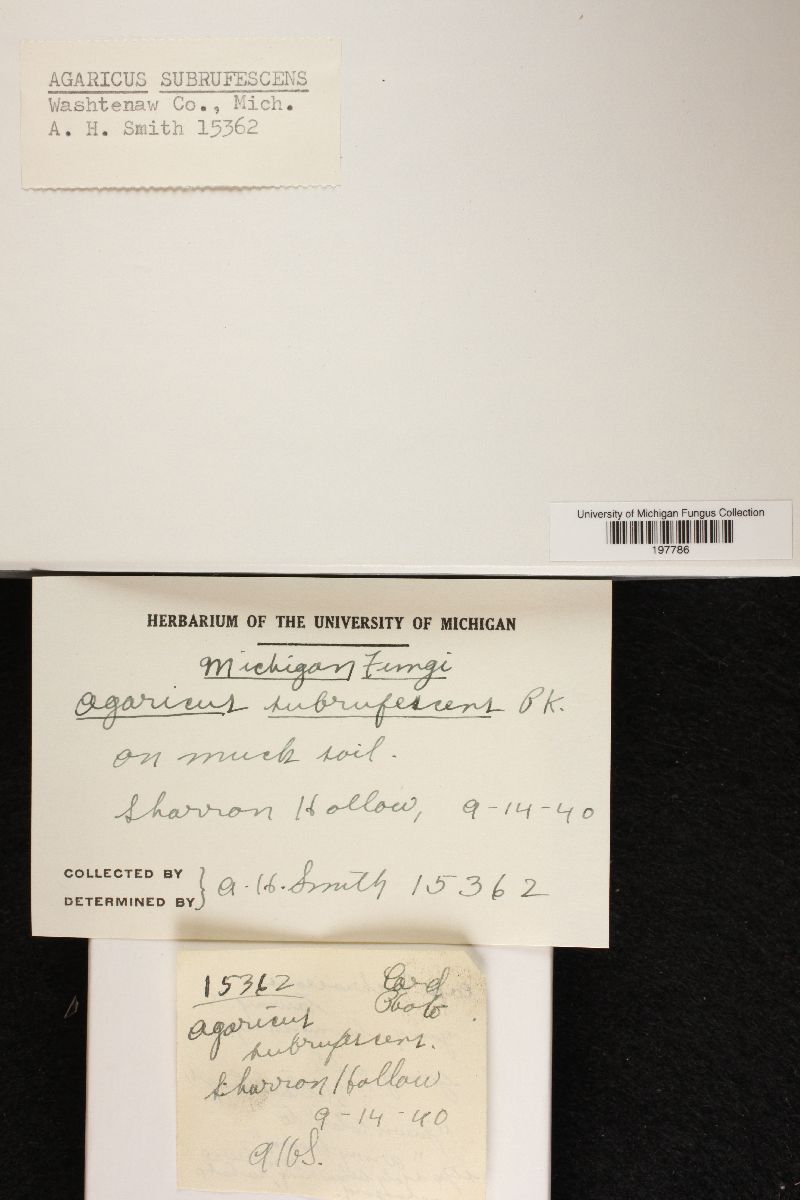 AGARICUS SUBRUFESCENS
Washtenaw Co., Mich.
A. H. Smith 15362
University of Michigan Fungus Collection
197786
HERBARIUM OF THE UNIVERSITY OF MICHIGAN
Michigan Fungi
Agaricus subrufescens Pk.
on muck soil.
Sharron Hollow, 9-14-40
COLLECTED BY
DETERMINED BY } A. H. Smith 15362
15362 Card
Photo
Agaricus
subrufescens.
Sharron Hollow
9-14-40
AHS.